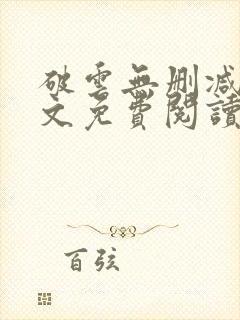 破雲無刪減
文免費閱讀
百弦